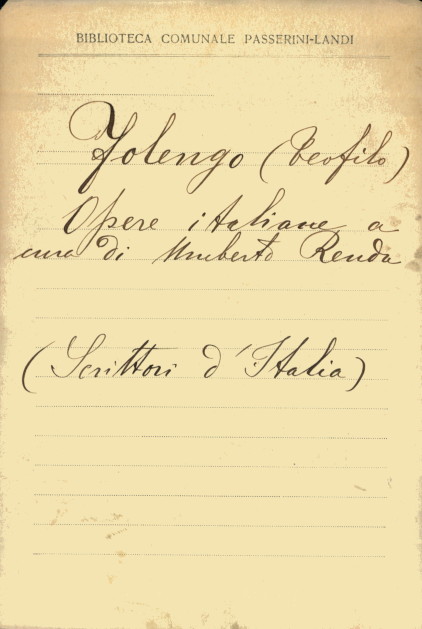 BIBLIOTECA COMUNALE PASSERINI-LANDI
Folengo (Teofilo)
Opere italiane a
cura di Umberto Renda
(Scrittori d'Italia)